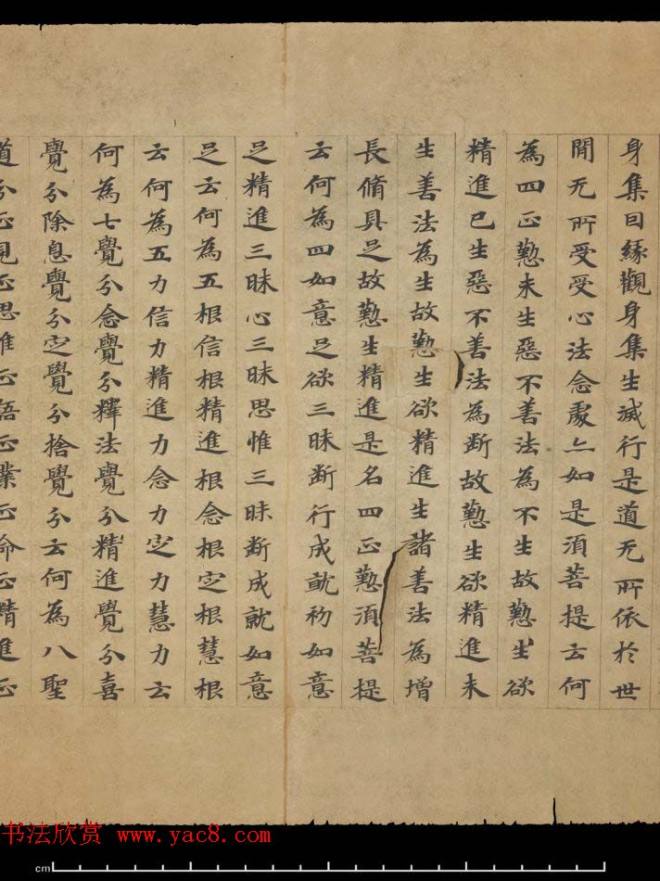 身集因緣觀身集生滅行是道无所依於世
間无所受受心法念處亦如是須菩提云何
為四正懃未生惡不善法為不生故懃生欲
精進已生惡不善法為断故懃生欲精進未
生善法為生故懃生欲精進生諸善法為增
長脩具足故懃生精進是名四正懃須菩提
云何為四如意足欲三昧断行成就初如意
足精進三昧心三昧思惟三昧断成就如意
足云何為五根信根精進根念根定根慧根
云何為五力信力精進力念力定力慧力云
何為七覺分念覺分釋法覺分精進覺分喜
覺分除息覺分定覺分捨覺分云何為八聖
道分正見正思惟正語正業正命正精進正
书法欣赏 www.yac8.com
cm